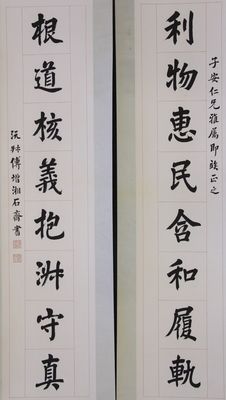 子安仁兄雅屬即正之
利物惠民含和履軌
根道核義抱淑守真
沅叔傅增湘石齋書